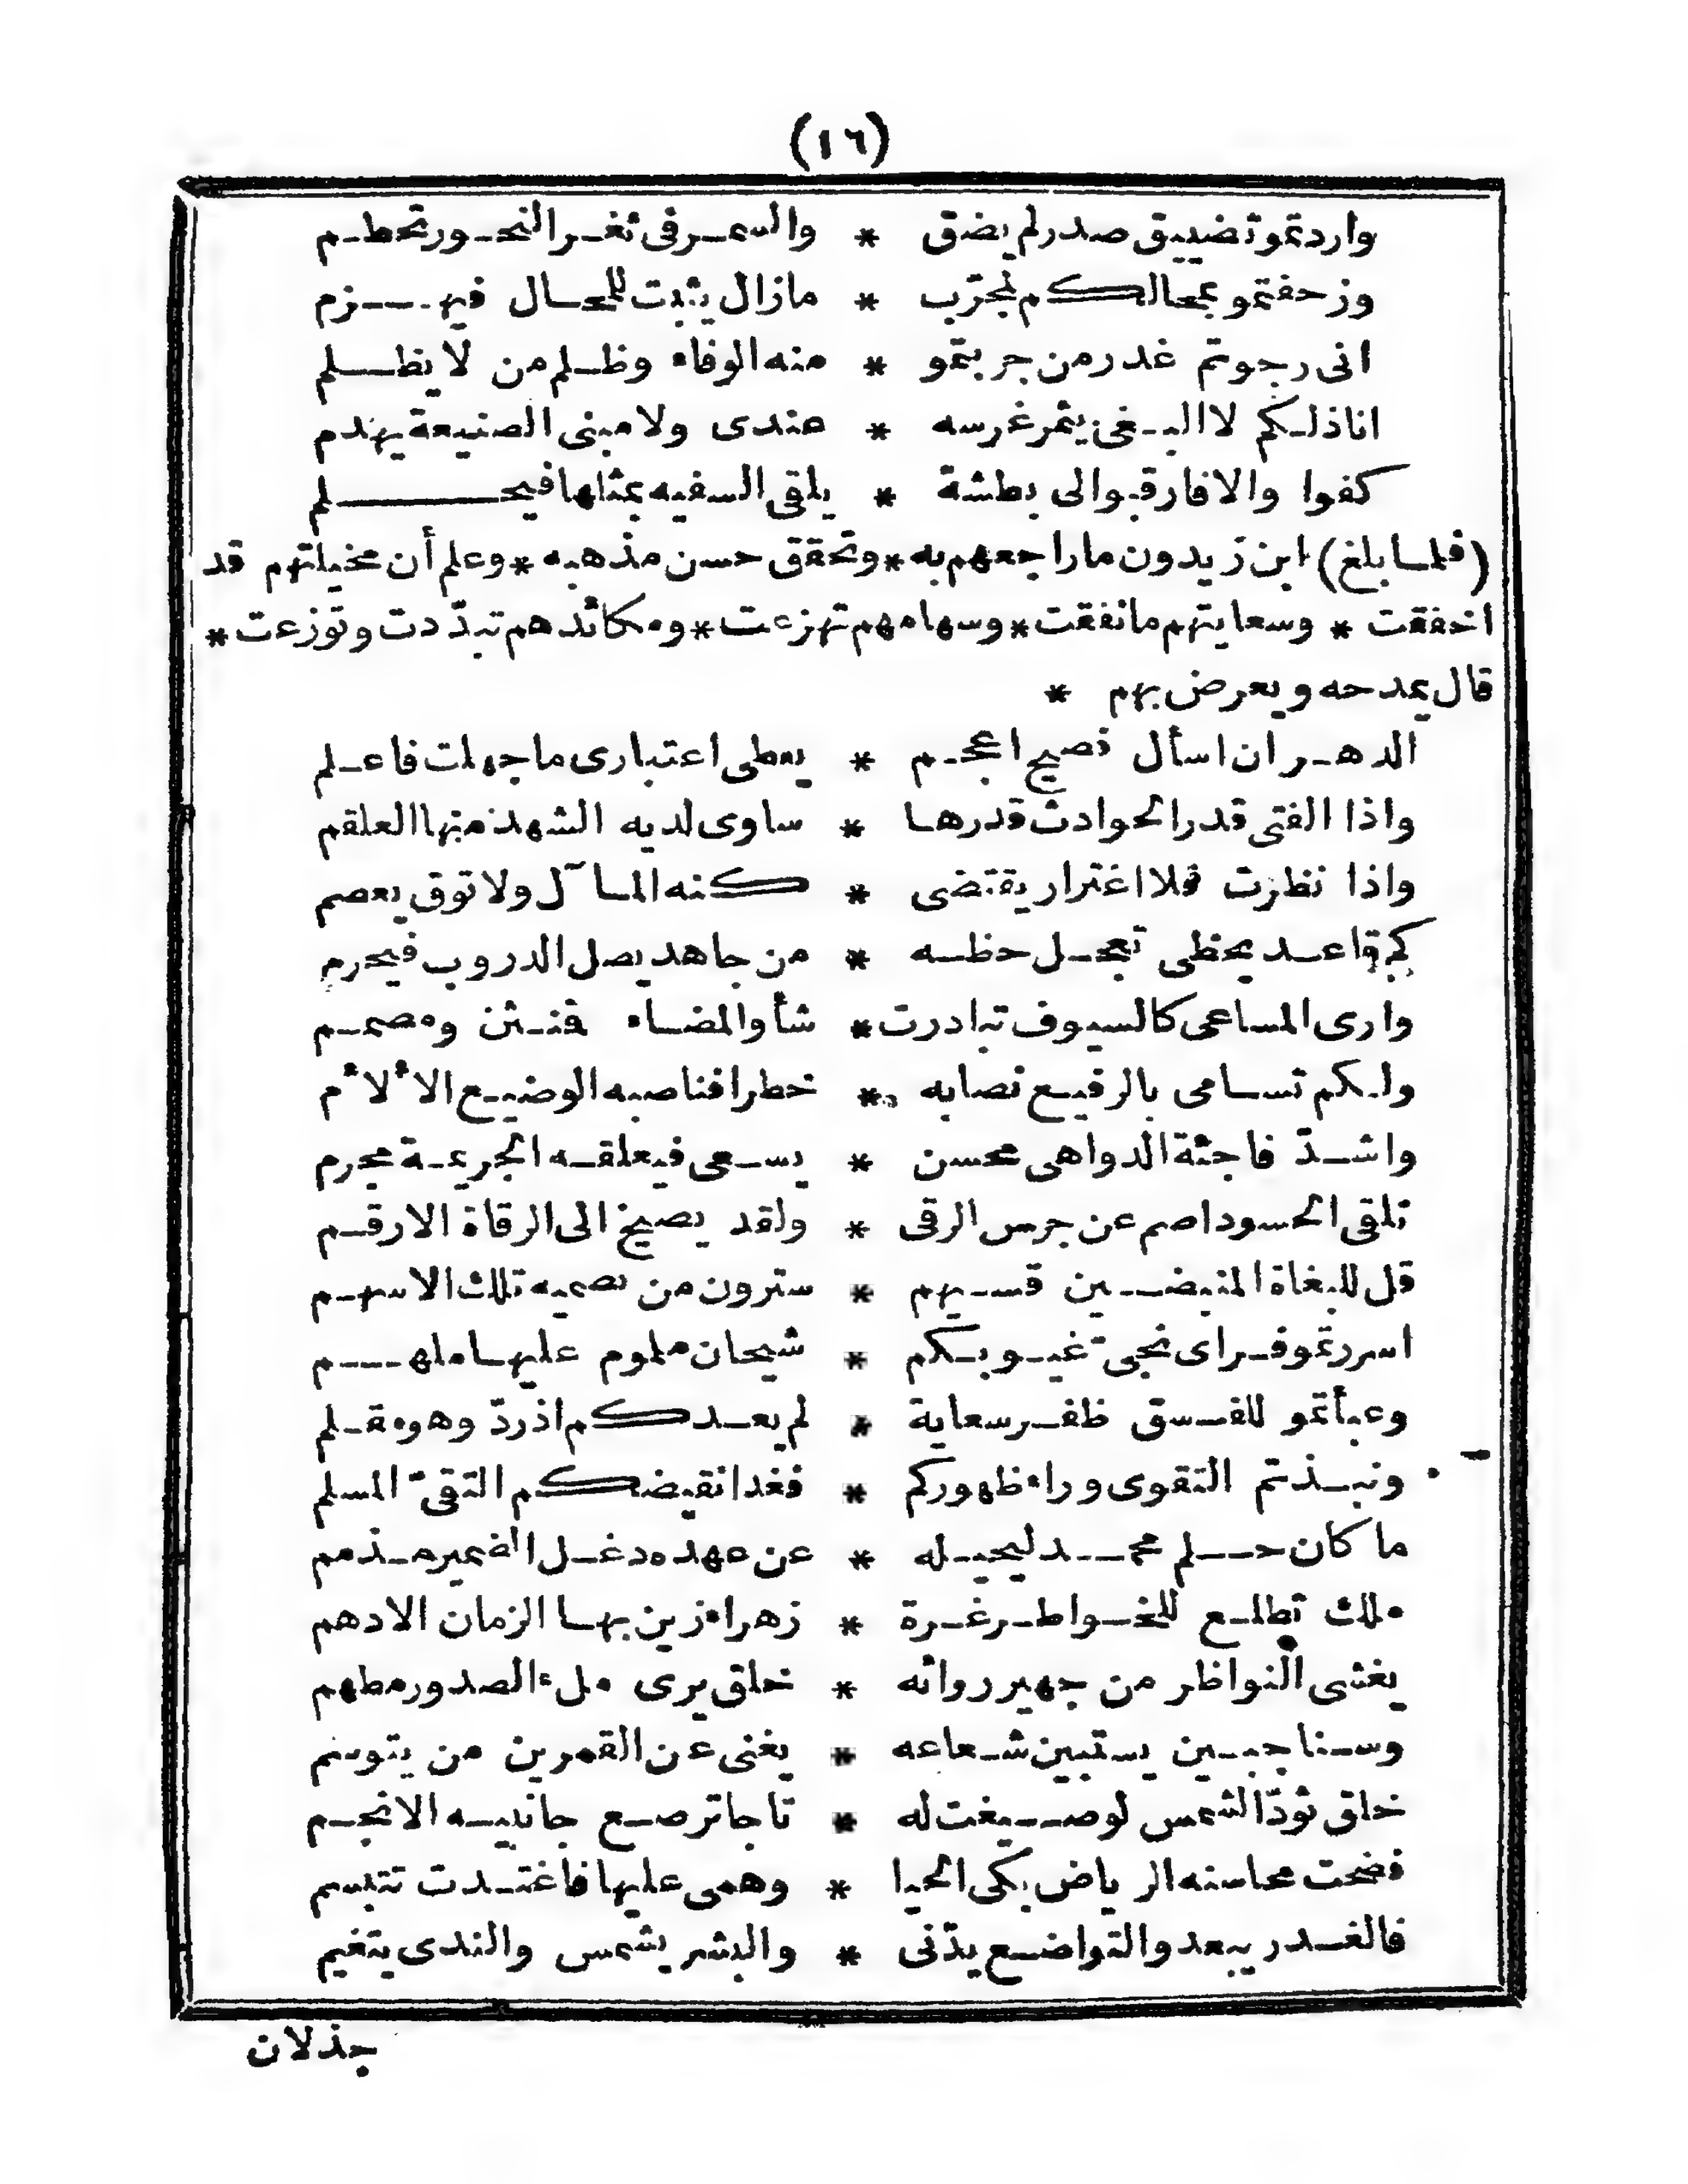 (١٦)
واردتمو تضييق صدر لم يضق * والسمر فى ثغر النحور تحطم
وزحفتمو بمحالكم لمجرّب * مازال يثبت للمحال فيهزم
انى رجوتم غدر من جربتمو * منه الوفاء وظلم من لا يظلم
انا ذلكم لا البغى يثمر غرسه * عندى ولا مبنى الصنيعة يهدم
كفوا والا فارقبوا لى بطشة * يلقى السفيه بمثلها فيحلم
(فلما بلغ) ابن زيدون ما راجعهم به * وتحقق حسن مذهبه * وعلم أن مخيلتهم قد
اخفقت * وسعايتهم ما نفقت * وسهامهم تهزعت * ومكائدهم تبدّدت وتوزعت *
قال يمدحه ويعرض بهم *
الدهر ان اسأل فصيح اعجم * يعطى اعتبارى ما جهلت فاعلم
واذا الفتى قدر الحوادث قدرها * ساوى لديه الشهد منها العلقم
واذا نظرت فلا اغترار يقتضى * كنه المآل ولا توق يعصم
كم قاعد يحظى تعجل حظه * من جاهد يصل الدروب فيحرم
وارى المساعى كالسيوف تبادرت * شأو المضاء فنثن ومصمم
ولكم تسامى بالرفيع نصابه * خطرا فناصبه الوضيع الألأم
واشدّ فاجئة الدواهى محسن * يسعى فيعلقه الجريمة مجرم
تلقى الحسود اصم عن جرس الرقى * ولقد يصيخ الى الرقاة الارقم
قل للبغاة المنبضين قسيهم * سترون من تصميه تلك الاسهم
اسررتمو فراى نجىّ غيوبكم * شيحان ملموم عليها ملهم
وعبأتمو للفسق ظفر سعاية * لم يعدكم اذ ردّ وهو مقلم
ونبذتم التقوى وراء ظهوركم * فغدا نقيضكم التقىّ المسلم
ما كان حلم محمد ليحيله * عن عهده دغل الضمير مذمم
ملك تطلع للخواطر غرة * زهراء زين بها الزمان الادهم
يغشى النواظر من جهير روائه * خلق يرى ملء الصدور مطهم
وسنا جبين يستبين شعاعه * يغنى عن القمرين من يتوسم
خلق تودّ الشمس لو صيغت له * تاجا ترصع جانبيه الانجم
فضحت محاسنه الرياض بكى الحيا * وهمى عليها فاغتدت تتبسم
فالغدر يبعد والتواضع يدّنى * والبشر يشمس والندى يتغيم
جذلان